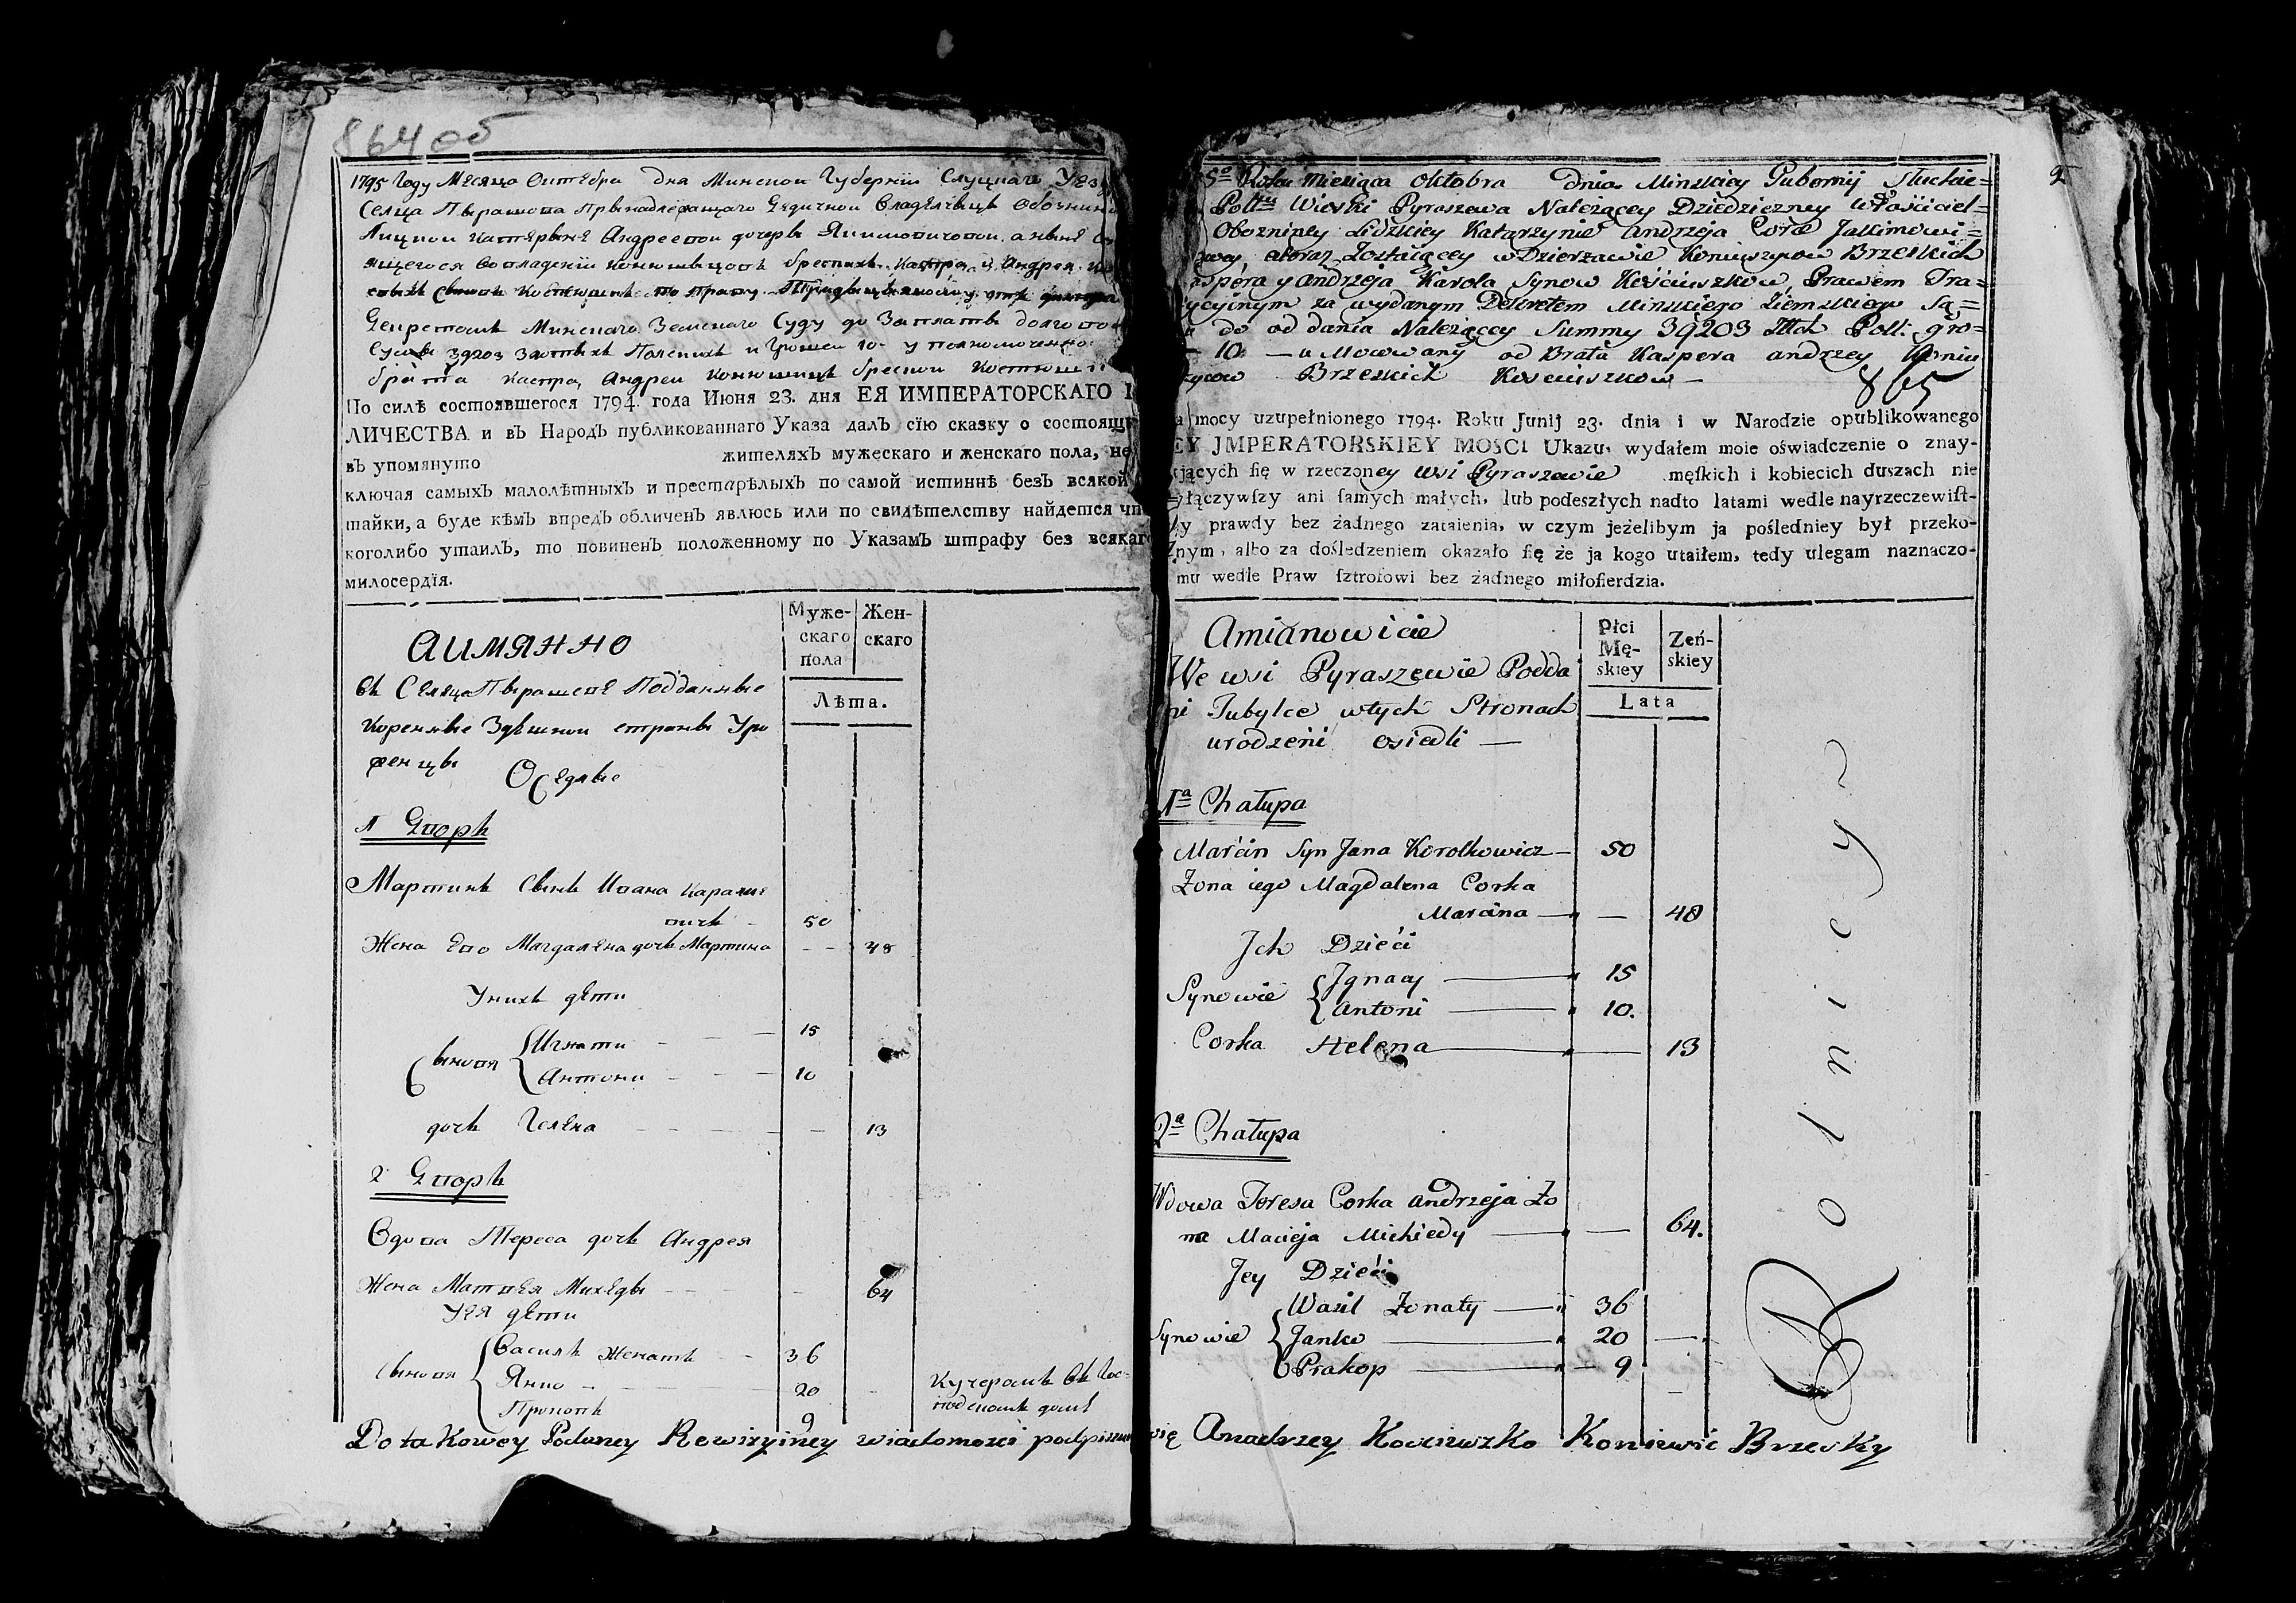 864 об
1795 Году Месяца Октебра дня Минской Губерніи Слуцкаго Уез
Селца Пырашова Принадлежащаго Едичной Владелице Обознини
Лицкои Катерыне Андреевой дочеры Якимовичовой а ныне
ящегося во владении Конюшыцовъ бреских Каспра и Андрея
сынов Костюшков по Праву
Декретомъ Минскаго Земскаго Суду до Заплаты долго
Сумы 39203 Злотыхъ Полских и Грошей 10 уполномоченно
брата Каспра, Андрей Конюшиц брескои Костюш
По силѣ состоявшегося 1794. года Июня 23. дня ЕЯ ИМПЕРАТОРСКАГО
ЛИЧЕСТВА и въ Народъ публикованнаго Указа далъ сїю сказку о состоящ
въ упомянуто жителяхъ мужескаго и женскаго пола, не
ключая самыхъ малолѣтныхъ и престарѣлыхъ по самой истиннѣ безъ всякой
тайки, а буде кѣмъ впредъ обличенъ явлюсь или по свидѣтелству найдется чт
коголибо утаилъ, то повиненъ положенному по Указамъ штрафу без всякаг
милосердїя.
Муже-скаго пола
Жен-скаго
Лѣта.
АИМЯННО
въ Селцо Пырашеве Подданные
Кореняые Здешнои страны Уро
женцы Оседлые
1 Дворъ
Мартинъ сынъ Ивана Каралке
вичъ - 50
Жена Его Магдалена дочь Мартина - - 48
Унихъ дети
Сыновя { Игнати - - 15
Антони - - - 10
дочъ Гелена - - - - - 13
2 Дворъ
Вдова Тереса дочь Андрея
Жена Матвея Михеды - - - 64
Уея дети
Сыновя { Василь Женатъ - - 36
Янко - - - - 20 -
Прокопъ 9
Кучеромъ въ Гос-
подскомъ доме
Do takowey Podaney Rewizyiney wiadomości podpisuie
5º Roku Miesiąca Oktobra Dnia Minskiey Gubernij Słuckie=
Pottu Wioski Pyraszewa Należącey Dziedziczney Włościciel=
Oboznipey Lidzkiey Katarzynie Andrzeja Corce Jakimowi=
wey, ateraz Zostaiącey w Dzierżawie Koniuszycow Brzeskich
aspera y Andrzeja Karola Synow Kościuszkow, Prawem Tra=
ycyinym za wydanym Dekretem Minskiego Ziemskiego Są=
do oddania Należącey Summy 39203 Złch Poll: gro=
10. — uMocowany od Brata Kaspera Andrzey Koniu
zycow Brzeskich Kosciuszkow —
2
865
a mocy uzupełnionego 1794. Roku Junij 23. dnia i w Narodzie opublikowanego
EY JMPERATORSKIEY MOSCI Ukazu, wydałem moie oświadczenie o znay-
ujących się w rzeczoney wsi Pyraszewie męſkich i kobiecich duszach nie
yłączywſzy ani ſamych małych, lub podeszłych nadto latami wedle nayrzeczewiſt-
y prawdy bez żadnego zataienia, w czym jeżelibym ja pośledniey był przeko-
nym, albo za dośledzeniem okazało ſię że ja kogo utaiłem, tedy ulegam naznaczo-
mu wedle Praw ſztrofowi bez żadnego miłoſierdzia.
Płci Mę-skiey
Zeń-skiey
Lata
Amianowicie
We wsi Pyraszewie Podda
ni Tubylce wtych Stronach
urodzeni osiedli —
1ª Chałupa
Marcin Syn Jana Korolkowicz — 50
Żona iego Magdalena Corka
Marcina — — 48
Jch Dzieci
Synowie { Jgnacy — 15
Antoni — 10.
Corka Helena — — 13
2ª Chałupa
Wdowa Teresa Corka Andrzeja Żo
na Macieja Michiedy — — 64.
Jey Dzieci
Synowie { Wasil Żonaty — 36
Janko — 20 —
Prakop — 9
Rolnicy
się Anadrzey Kosciuszko Koniuszic Brzesky